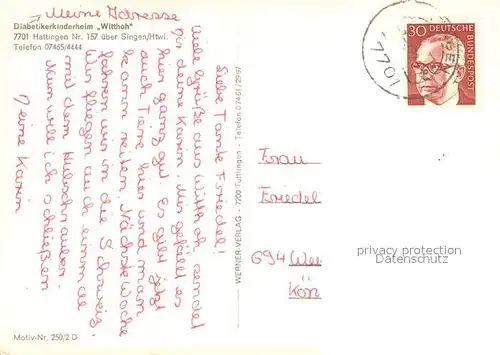 Meine Adresse
Diabetikerkinderheim „Witthoh"
7701 Hattingen Nr. 157 über Singen/Htwl.
Telefon 07465/4444
Liebe Tante Friedel!
Viele Grüße aus Witthoh sendet
Dir deine Karin. Mir gefällt es
hier ganz gut. Es gibt jetzt
auch Tiere hier und man
kann reiten. Nächste Woche
fahren wir in die Schweiz.
Wir fliegen auch einmal
mit dem Hubschrauber.
Nun will ich schließen
Deine Karin
WERNER-VERLAG - 7200 Tuttlingen - Telefon 07461/2597
30 DEUTSCHE BUNDESPOST
7701
Frau
Friedel
694
privacy protection
Datenschutz
Motiv-Nr. 250/2 D